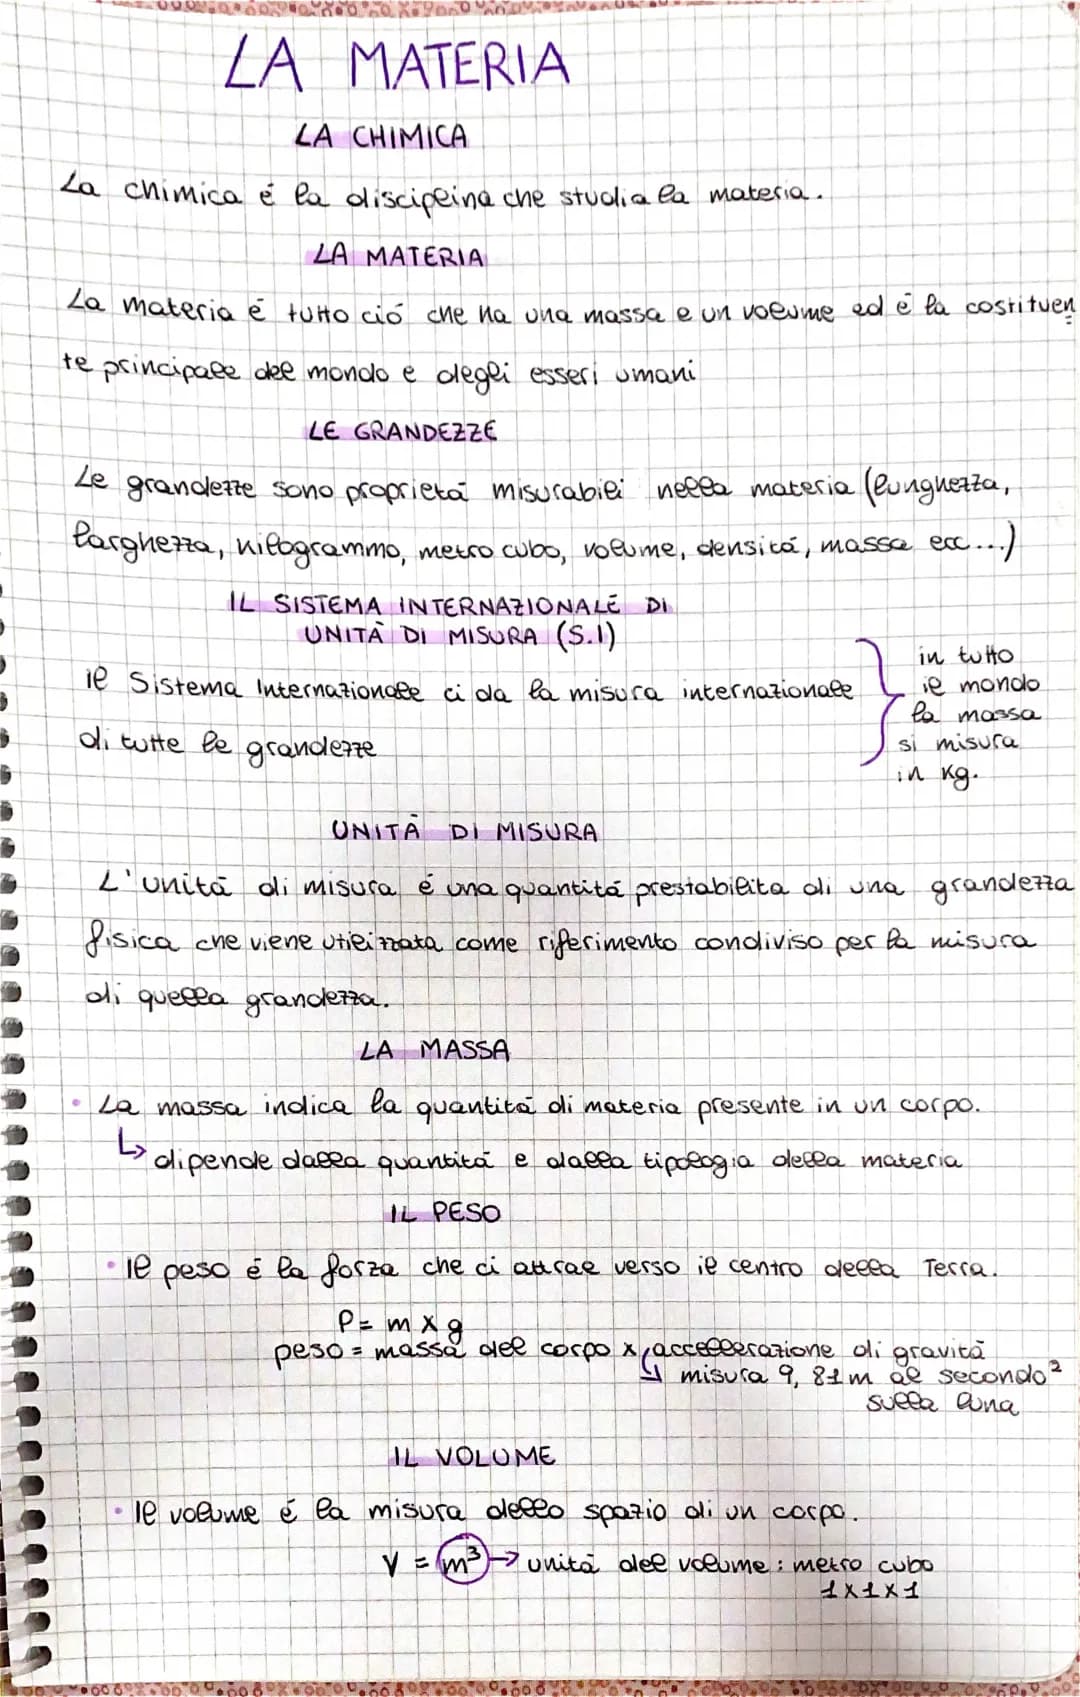 LA MATERIA
LA CHIMICA
La chimica é la disciplina che studia la materia.
LA MATERIA
La materia é tutto ció che ha una massa e un volume ed é la costituen
te principale del mondo e degli esseri umani
LE GRANDEZZE
Le grandezze sono proprietá misurabili nella materia (lunghezza,
larghezza, kilogrammo, metro cubo, volume, densitá, massa ecc...)
IL SISTEMA INTERNAZIONALE DI
UNITÀ DI MISURA (S.I)
Il Sistema Internazionale ci da la misura internazionale
di tutte le grandezze
in tutto
il mondo
la massa
si misura
in kg.
UNITÀ DI MISURA
L'unitá di misura é una quantitá prestabilita di una grandezza
fisica che viene utilizzata come riferimento condiviso per la misura
di quella grandezza.
LA MASSA
• La massa indica la quantitá di materia presente in un corpo.
↳ dipende dalla quantitá e dalla tipologia della materia
IL PESO
• Il peso é la forza che ci attrae verso il centro della Terra.
P = m x g
peso = massa del corpo x accellerazione di gravitá
↳ misura 9,81m al secondo²
sulla luna
IL VOLUME
• Il volume é la misura dello spazio di un corpo.
V = m³ → unitá del volume : metro cubo
1x1x1